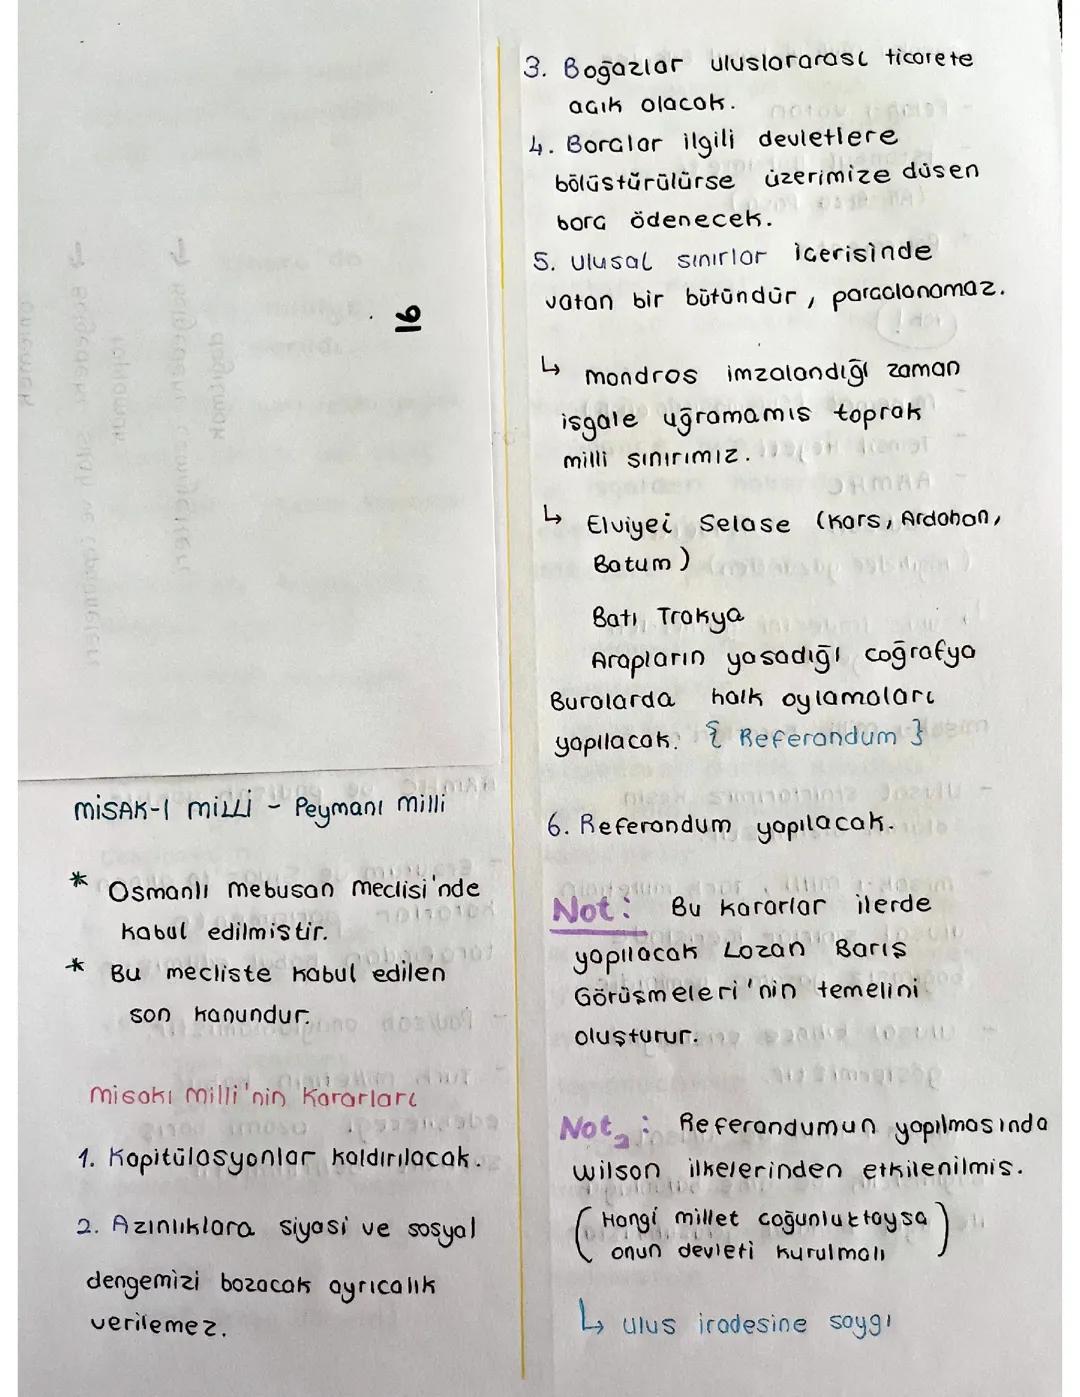 16
MİSAK-I MİLLİ - Peymanı Milli
* Osmanlı Mebusan Meclisi'nde
kabul edilmiştir.
* Bu mecliste kabul edilen
son kanundur.
Misakı Milli'nin Kararları
1. Kapitülasyonlar kaldırılacak.
2. Azınlıklara siyasi ve sosyal
dengemizi bozacak ayrıcalık
verilemez.
3. Boğazlar uluslararası ticarete
açık olacak.
4. Borçlar ilgili devletlere
bölüştürülürse üzerimize düşen
borç ödenecek.
5. Ulusal sınırlar içerisinde
vatan bir bütündür, parçalanamaz.
↳ Mondros imzalandığı zaman
işgale uğramamış toprak
milli sınırımız.
↳ Elviyei Selase (Kars, Ardahan,
Batum)
Batı Trakya
Arapların yaşadığı coğrafya
Buralarda halk oylamaları
yapılacak. { Referandum }
6. Referandum yapılacak.
Not: Bu kararlar ilerde
yapılacak Lozan Barış
Görüşmeleri'nin temelini
oluşturur.
Not2: Referandumun yapılmasında
Wilson ilkelerinden etkilenilmiş.
( Hangi millet çoğunluktaysa
onun devleti kurulmalı )
↳ ulus iradesine saygı